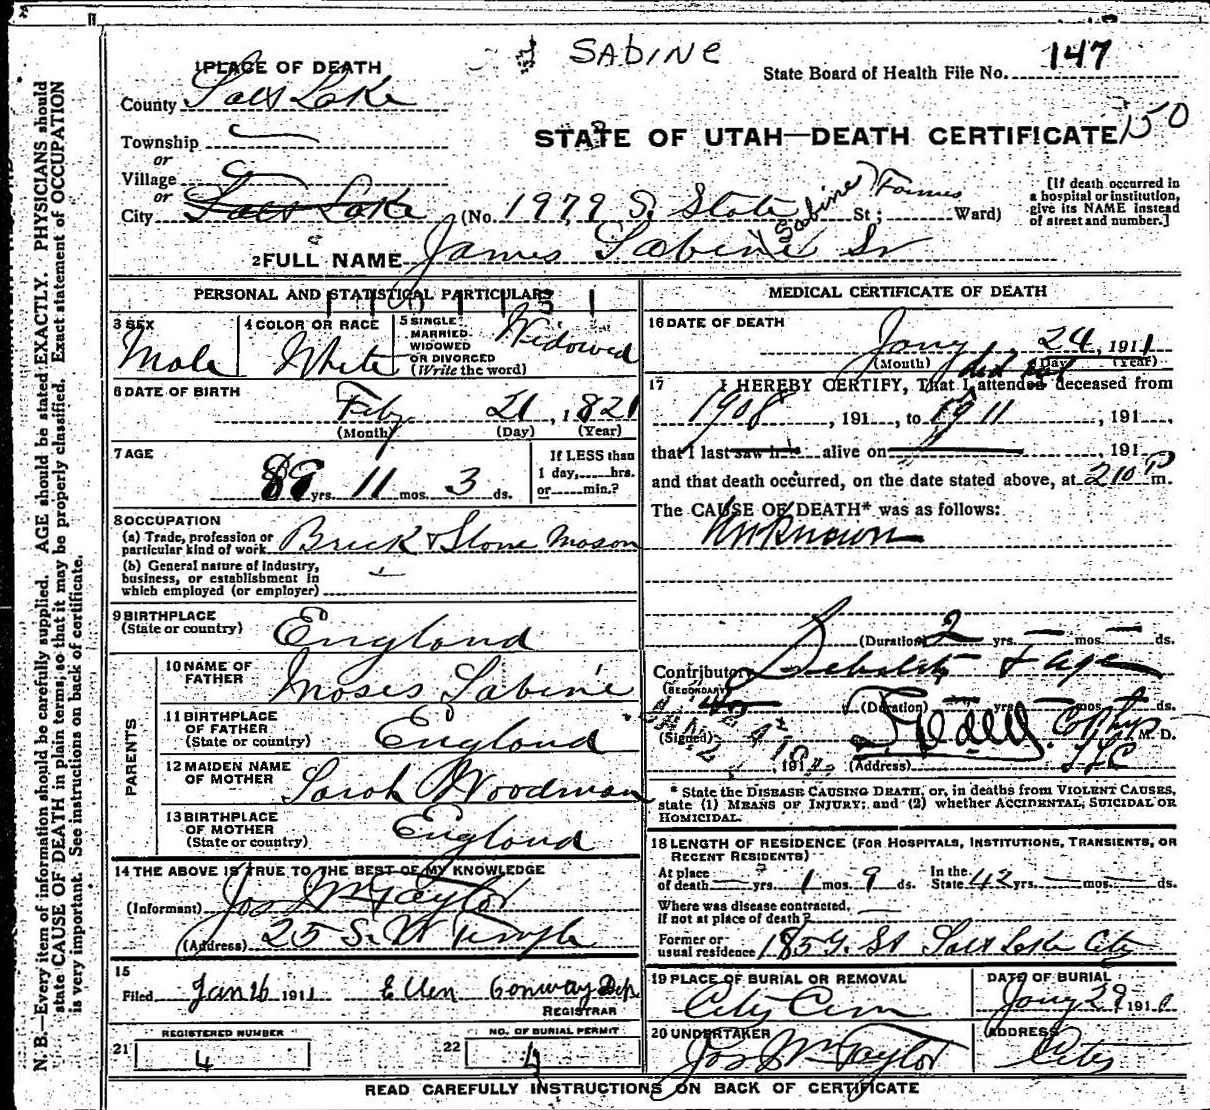 SABINE
State Board of Health File No. 147
150
1 PLACE OF DEATH
STATE OF UTAH—DEATH CERTIFICATE
County Salt Lake
Township
or
Village
or
City Salt Lake (No. 1979 S. State St; Ward)
[If death occurred in a hospital or institution, give its NAME instead of street and number.]
Sabine
2 FULL NAME James Sabine Sr
PERSONAL AND STATISTICAL PARTICULARS
3 SEX
Male
4 COLOR OR RACE
White
5 SINGLE
MARRIED
WIDOWED
OR DIVORCED
(Write the word)
Widowed
6 DATE OF BIRTH
Feby 21, 1821
(Month) (Day) (Year)
7 AGE
89 yrs. 11 mos. 3 ds.
If LESS than
1 day, hrs.
or min.?
8 OCCUPATION
(a) Trade, profession or
particular kind of work Brick & Stone Mason
(b) General nature of industry,
business, or establishment in
which employed (or employer)
9 BIRTHPLACE
(State or country) England
PARENTS
10 NAME OF
FATHER Moses Sabine
11 BIRTHPLACE
OF FATHER
(State or country) England
12 MAIDEN NAME
OF MOTHER Sarah Woodman
13 BIRTHPLACE
OF MOTHER
(State or country) England
14 THE ABOVE IS TRUE TO THE BEST OF MY KNOWLEDGE
(Informant) Jos Wm Taylor
(Address) 25 S. W Temple
15
Filed Jan 26 1911 Ellen Conway Dep
REGISTRAR
REGISTERED NUMBER
21 4
NO. OF BURIAL PERMIT
22 4
MEDICAL CERTIFICATE OF DEATH
16 DATE OF DEATH
Jany 24, 1911
(Month) (Day) (Year)
did not
17 I HEREBY CERTIFY, That I attended deceased from
1908, 191 , to 1911, 191 ,
that I last saw h alive on , 191
and that death occurred, on the date stated above, at 2 10 P m.
The CAUSE OF DEATH* was as follows:
Unknown
(Duration) 2 yrs. — mos. — ds.
Contributory Debility & Age
(SECONDARY)
(Duration) yrs. mos. ds.
(Signed) Co Phys M. D.
, 191 (Address) SLC
* State the DISEASE CAUSING DEATH, or, in deaths from VIOLENT CAUSES,
state (1) MEANS OF INJURY; and (2) whether ACCIDENTAL, SUICIDAL OR
HOMICIDAL.
18 LENGTH OF RESIDENCE (FOR HOSPITALS, INSTITUTIONS, TRANSIENTS, OR
RECENT RESIDENTS)
At place
of death — yrs. 1 mos. 9 ds.
In the
State 42 yrs. — mos. — ds.
Where was disease contracted,
if not at place of death?
Former or
usual residence St Salt Lake City
19 PLACE OF BURIAL OR REMOVAL
City Cem
DATE OF BURIAL
Jany 29 191
20 UNDERTAKER
Jos Wm Taylor
ADDRESS
City
READ CAREFULLY INSTRUCTIONS ON BACK OF CERTIFICATE
N. B.—Every item of information should be carefully supplied. AGE should be stated EXACTLY. PHYSICIANS should
state CAUSE OF DEATH in plain terms, so that it may be properly classified. Exact statement of OCCUPATION
is very important. See instructions on back of certificate.